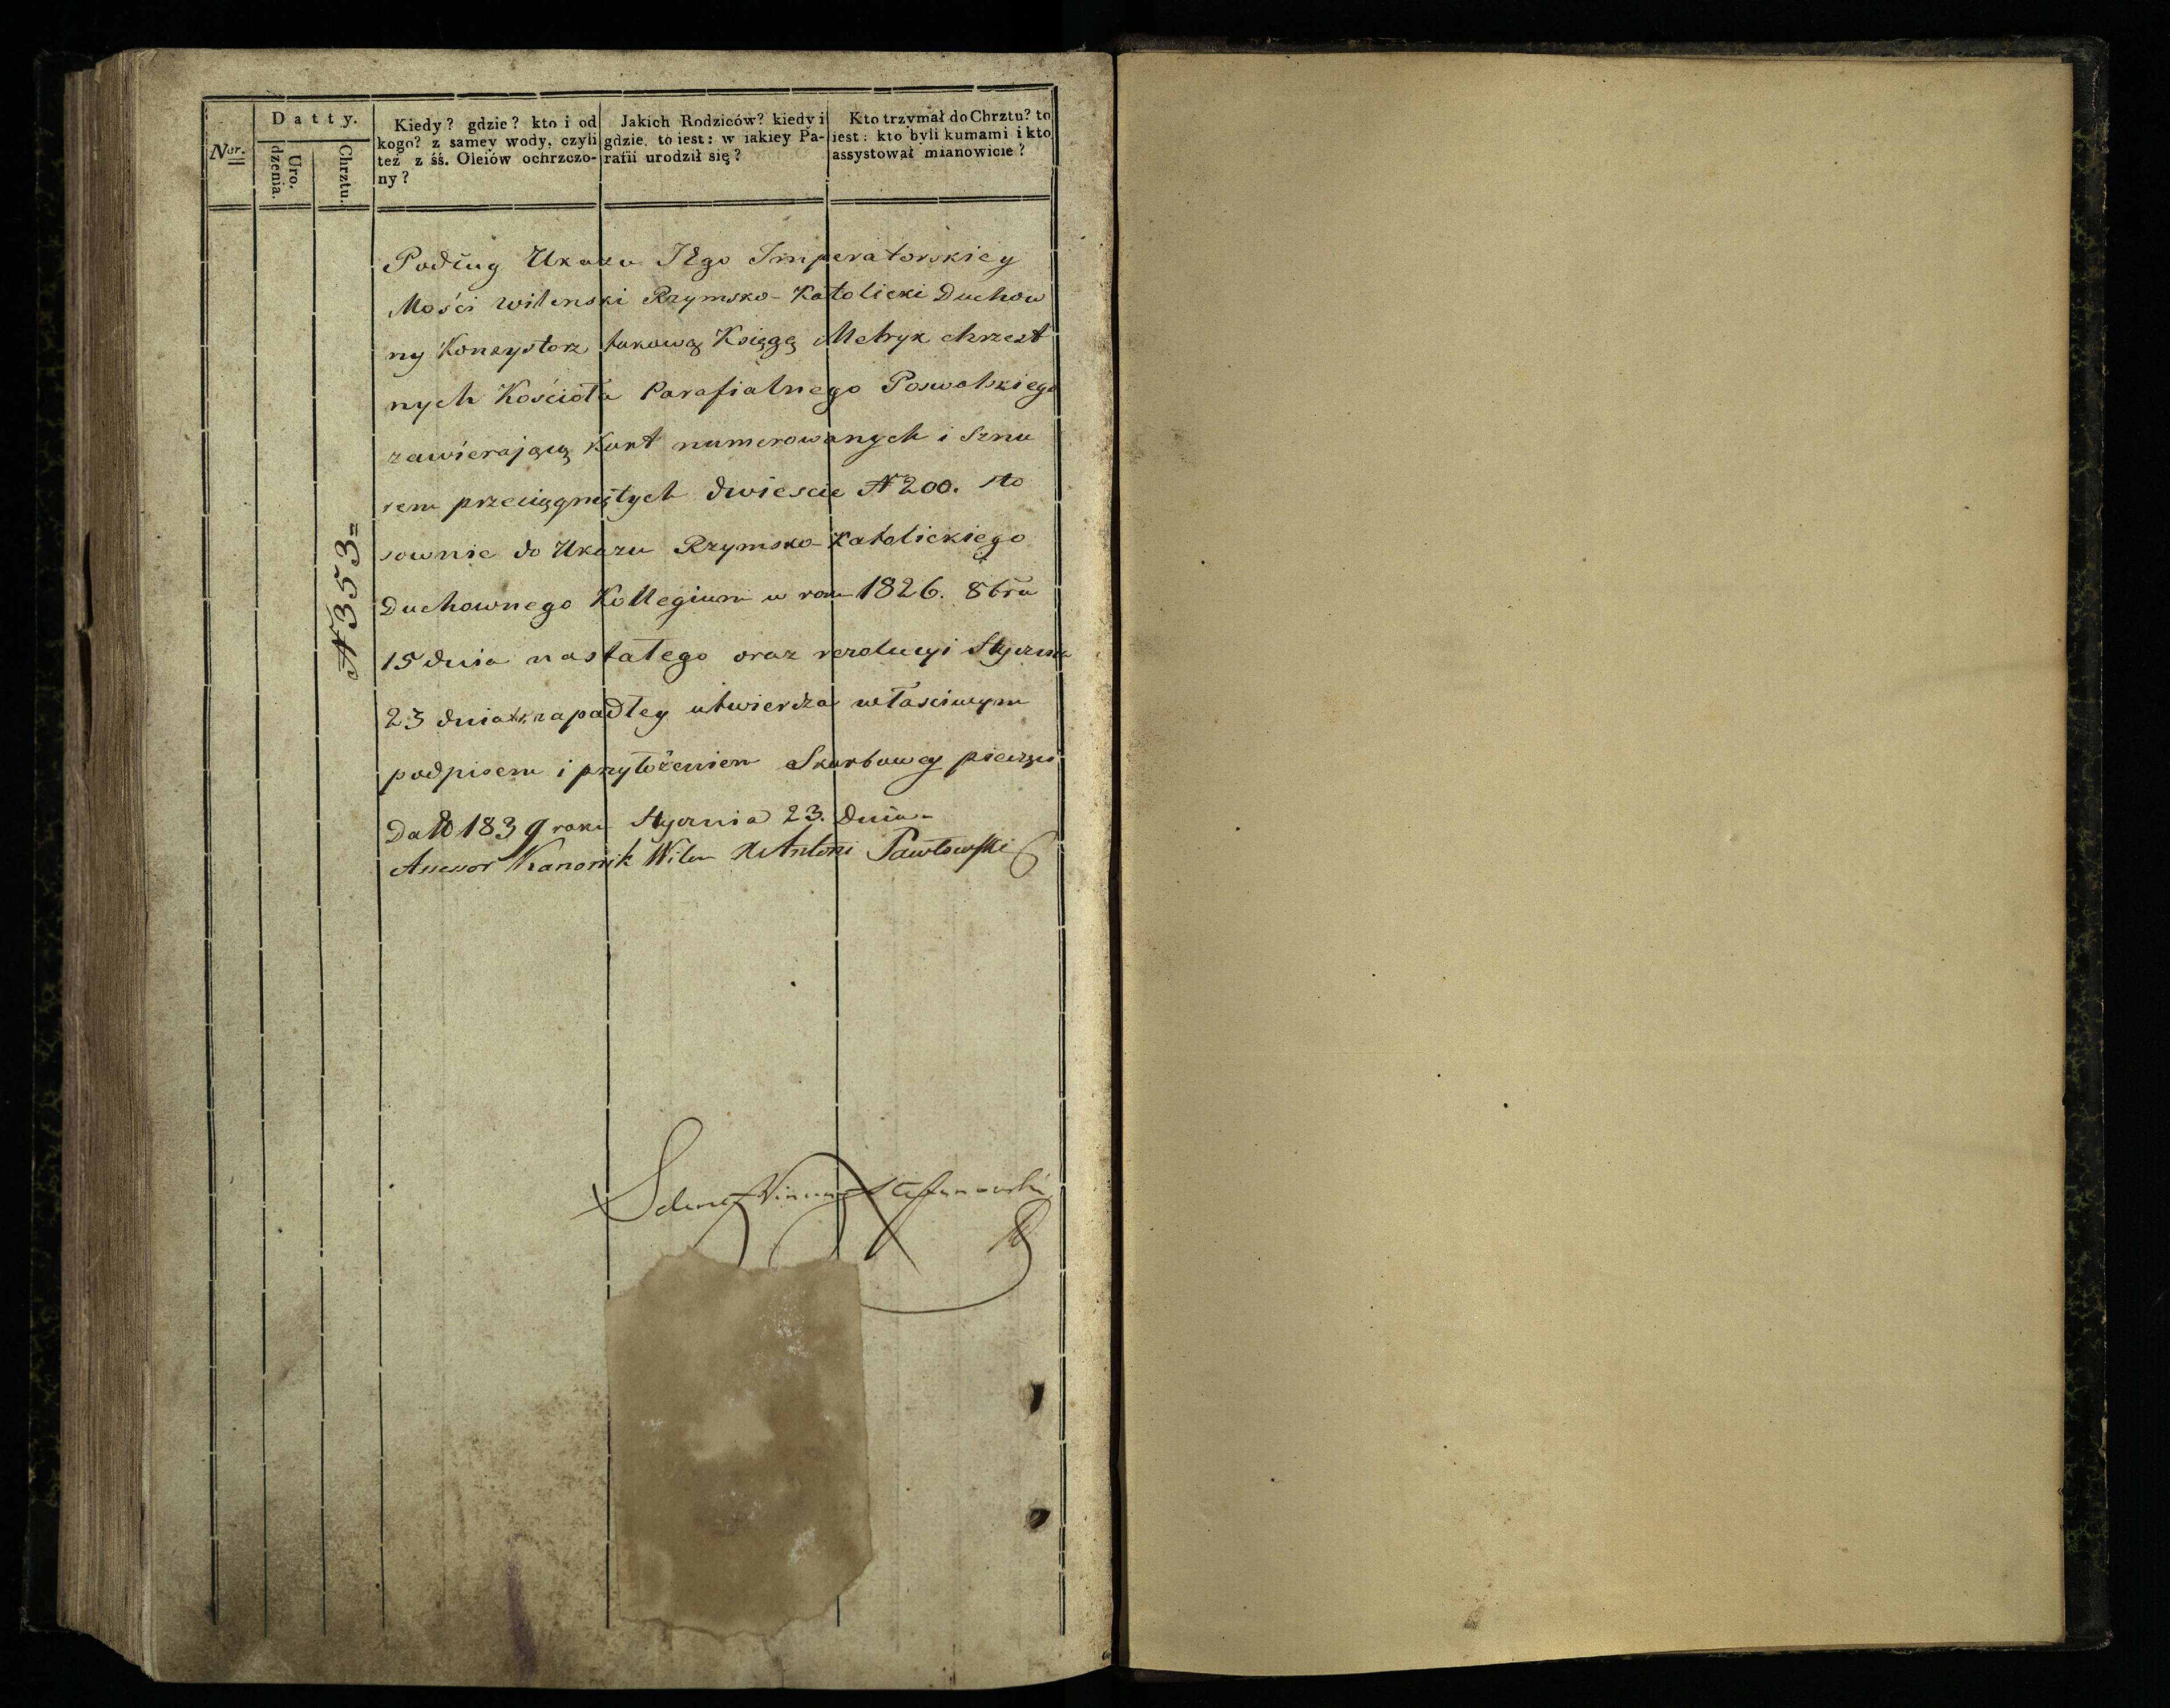 Ner.
Datty.
Uro.
dzenia.
Chrztu.
Kiedy? gdzie? kto i od
kogo? z samey wody, czyli
też z śś. Oleiów ochrzczo-
ny?
Jakich Rodziców? kiedy i
gdzie, to iest: w iakiey Pa-
rafii urodził się?
Kto trzymał do Chrztu? to
iest: kto byli kumami i kto
assystował mianowicie?
Podług Ukazu JEgo Imperatorskiey
Mości Wilenski Rzymsko-Katolicki Duchow
ny Konsystorz takową Księgę Metryk chrzest
nych Kościoła Parafialnego Poswolskiego
zawierającą kart numerowanych i sznu
rem przeciągniętych dwieście N 200. sto
sownie do Ukazu Rzymsko-Katolickiego
Duchownego Kollegium w roku 1826. 8bra
15 dnia nastałego oraz rezolucyi Stycznia
23 dnia zapadłey utwierdza właściwym
podpisem i przyłożeniem Skarbowey pieczęci
Dat 1839 roku Stycznia 23. Dnia
Assesor Kanonik Wilen X Antoni Pawłowski
N 353=